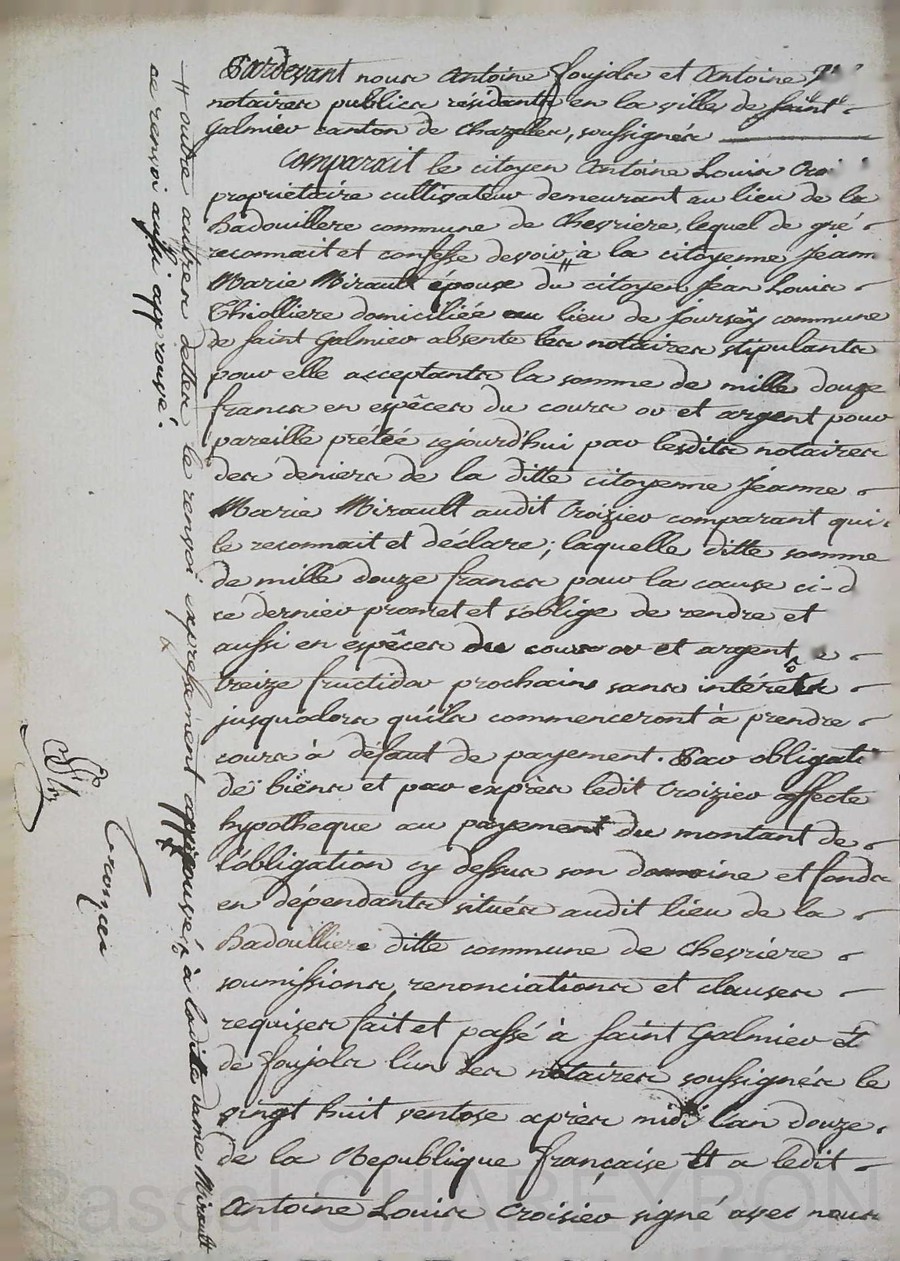 Pardevant nous Antoine Soujols et Antoine
notaires publics résidants en la ville de Saint
Galmier canton de Chazelles, soussignés
Comparait le citoyen Antoine Louis
propriétaire cultivateur demeurant au lieu de la
Badouillere commune de Chevriere, lequel de gré
reconnait et confesse devoir # à la citoyenne Jeanne
Marie Mirault épouse du citoyen Jean Louis
Thiolliere domiciliée au lieu de Joursey commune
de Saint Galmier absente les notaires stipulants
pour elle acceptants la somme de mille douze
francs en espêces du cours or et argent pour
pareille prétée cejourd'hui par lesdits notaires
des deniers de la ditte citoyenne Jeanne
Marie Mirault audit Croizier comparant qui
le reconnait et déclare; laquelle ditte somme
de mille douze francs pour la cause ci-d
ce dernier promet et s'oblige de rendre et
aussi en espêces du cours or et argent, le
treize fructidor prochains sans intérêts
jusqualors qu'ils commenceront à prendre
cours à défaut de payement. Par obligati
de biens et par exprès ledit Croizier affecte
hypotheque au payement du montant de
l'obligation cy dessus son domaine et fonds
en dépendants situés audit lieu de la
Badoulliere ditte commune de Chevriere
soumissions, renonciations et clauses
requises fait et passé à Saint Galmier et
de Soujols l'un des notaires soussignés le
vingt huit ventose après midi l'an douze
de la Republique française Et a ledit
Antoine Louis Croisier signé avec nous
# outre autres dettes le renvoi expressement approuvé, à laditte dame Mirault
ce renvoi aussi approuvé.
Pascal CHAREYRON